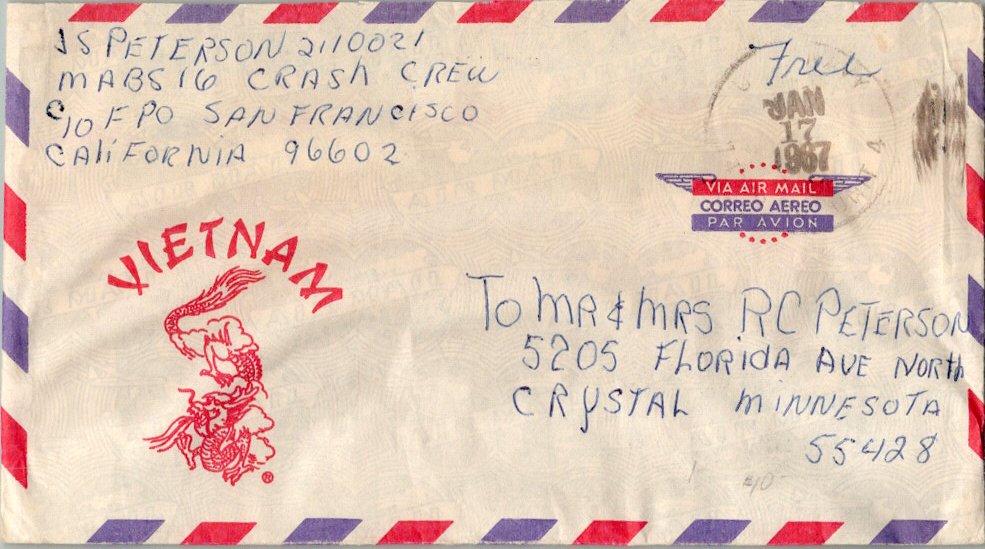 JS PETERSON 2110021
MABS 16 CRASH CREW
C/O FPO SAN FRANCISCO
CALIFORNIA 96602
Free
JAN
17
1967
VIA AIR MAIL
CORREO AEREO
PAR AVION
VIETNAM
®
TO MR & MRS RC PETERSON
5205 FLORIDA AVE NORTH
CRYSTAL MINNESOTA
55428